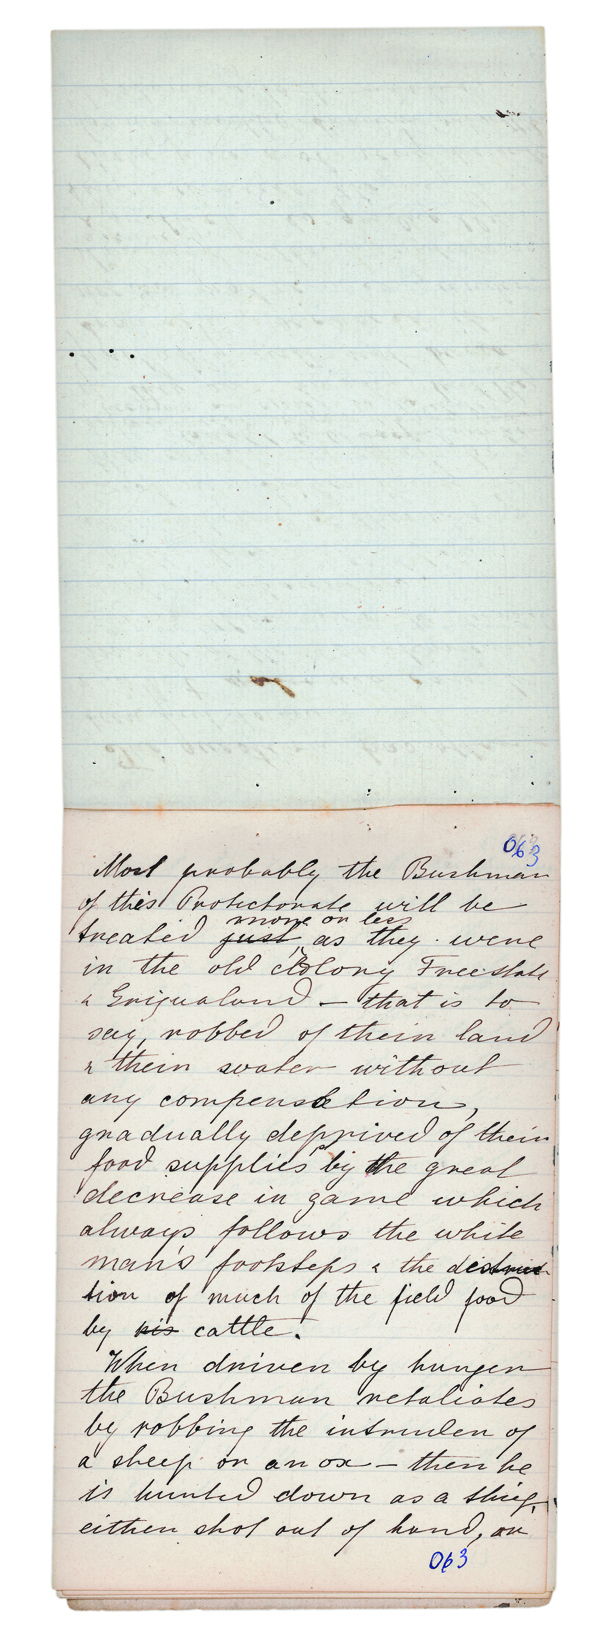 063
Most probably the Bushman
of this Protectorate will be
more or less
treated just as they were
in the old Colony Freestate
& Griqualand – that is to
say, robbed of their land
& their water without
any compensation,
gradually deprived of their
food supplies by the great
decrease in game which
always follows the white
man's footsteps & the destruc
tion of much of the field food
by his cattle.
When driven by hunger
the Bushman retaliates
by robbing the intruder of
a sheep or an ox – then he
is hunted down as a thief,
either shot out of hand, or
063